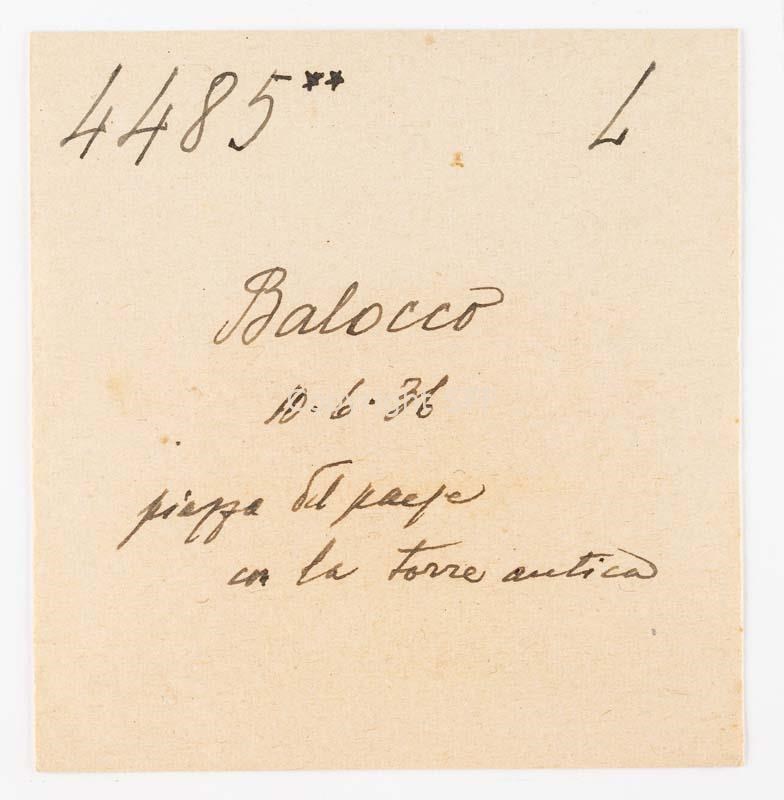 4485** L
Balocco
10.6.36
piazza del paese
con la torre antica